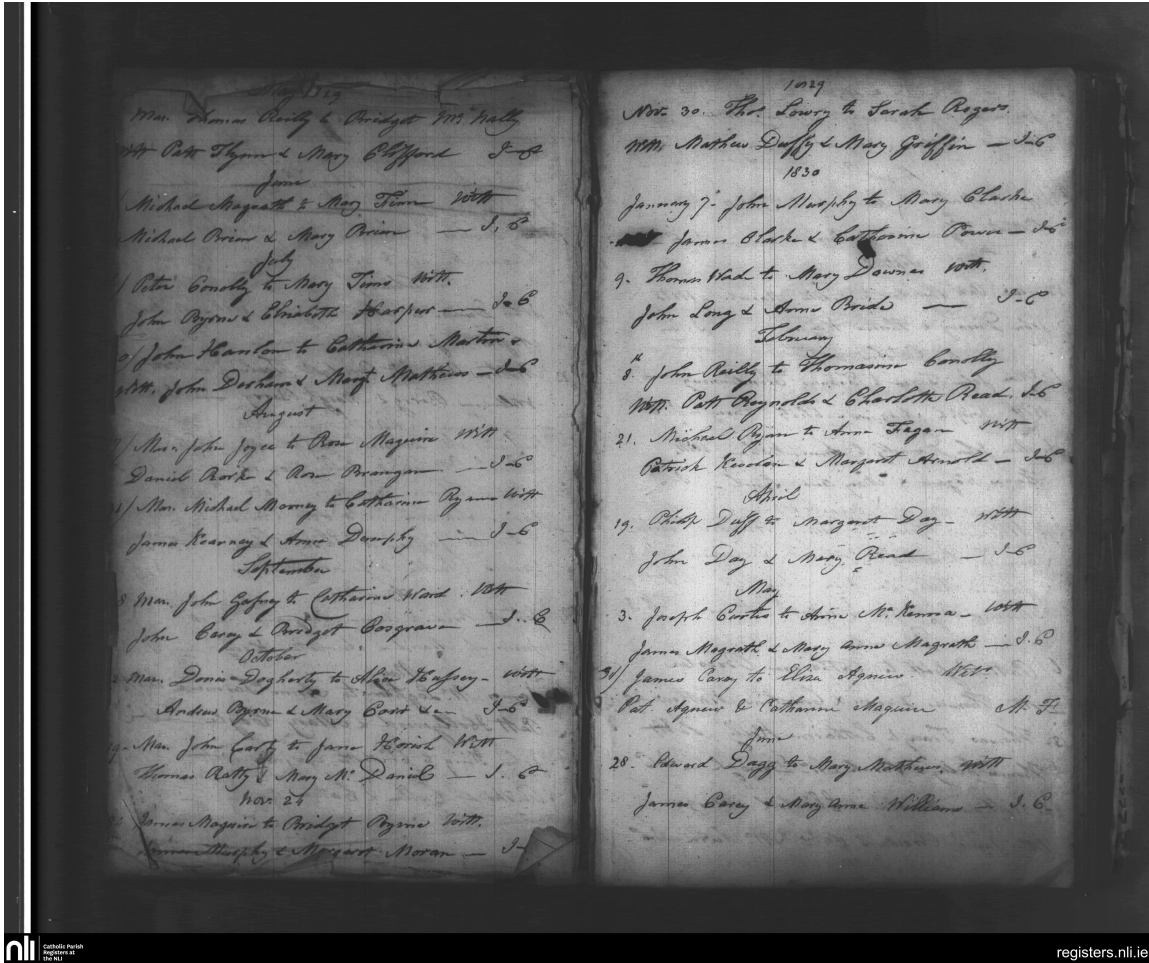 May 1829
Mar. Thomas Reilly to Bridget Mc Nally
Witt Patt Flynn & Mary Clifford J-C
June
Michael Magrath to Mary Finn Witt
Michael Brien & Mary Brien — J, C
July
Peter Conolly to Mary Tims Witt.
John Byrne & Elizabeth Harper — J-C
John Hanlon to Catharine Martin
Witt. John Derham & Mary Mathews — J-C
August
Mar. John Joyce to Rose Maguire Witt
Daniel Rorke & Rose Brangan — J-C
Mar. Michael Mooney to Catharine Ryan Witt
James Kearney & Anne Dunphy — J-C
September
8 Mar. John Gafney to Catharine Ward. Witt
John Carey & Bridget Cosgrave — J..C
October
Mar. Denis Dogherty to Alice Hussey - Witt
Andrew Byrne & Mary Corr J-C
Mar. John Carty to Jane Horish Witt
Thomas Ratty & Mary Mc Daniel — J. C
Nov. 24
James Maguire to Bridget Byrne Witt.
Murphy & Margaret Moran — J-
1829
Nov. 30. Thos. Lowry to Sarah Rogers.
Witt. Mathew Duffy & Mary Griffin — J-C
1830
January 7- John Murphy to Mary Clarke
James Clarke & Catharine Power — J-C
9. Thomas Wade to Mary Downes Witt.
John Long & Anne Bride — J-C
February
8th John Reilly to Thomasine Conolly
Witt. Patt Reynolds & Charlotte Read. J-C
21. Michael Ryan to Anne Fagan Witt
Patrick Keelan & Margaret Arnold — J-C
April
19. Philip Duff to Margaret Day - Witt
John Day & Mary Read — J-C
May
3. Joseph Curtis to Anne Mc Kenna - Witt
James Magrath & Mary Anne Magrath — J. C
31) James Carey to Eliza Agnew. Witt
Pat Agnew & Catharine Maguire M. F
June
28. Edward Dagg to Mary Mathews. Witt
James Carey & Mary Anne Williams — J. C
nli Catholic Parish
Registers at
the NLI
registers.nli.ie